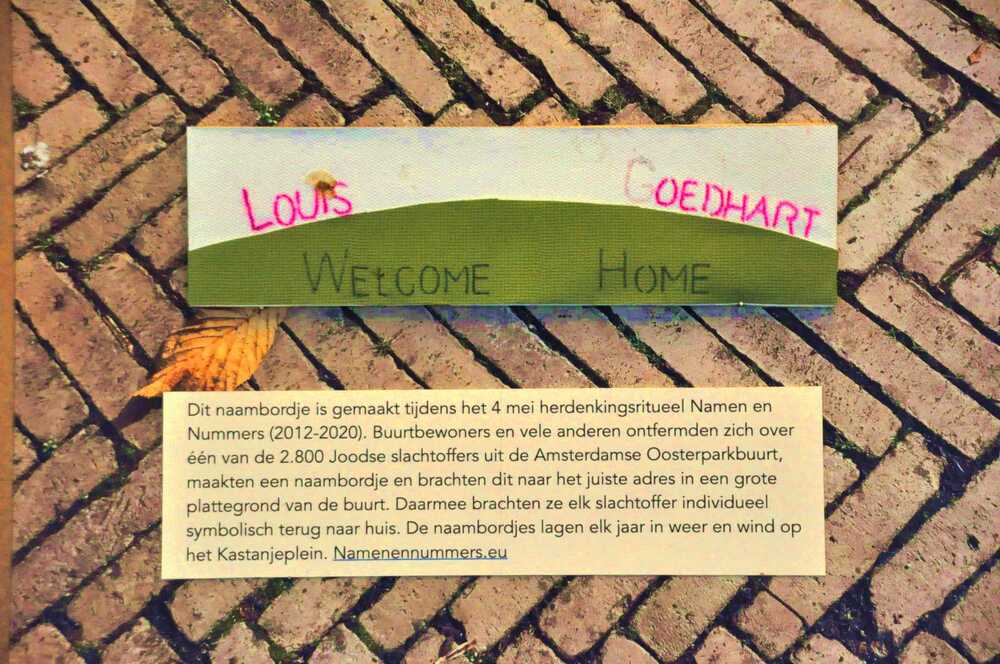 LOUIS GOEDHART
WELCOME HOME
Dit naambordje is gemaakt tijdens het 4 mei herdenkingsritueel Namen en
Nummers (2012-2020). Buurtbewoners en vele anderen ontfermden zich over
één van de 2.800 Joodse slachtoffers uit de Amsterdamse Oosterparkbuurt,
maakten een naambordje en brachten dit naar het juiste adres in een grote
plattegrond van de buurt. Daarmee brachten ze elk slachtoffer individueel
symbolisch terug naar huis. De naambordjes lagen elk jaar in weer en wind op
het Kastanjeplein. Namenennummers.eu